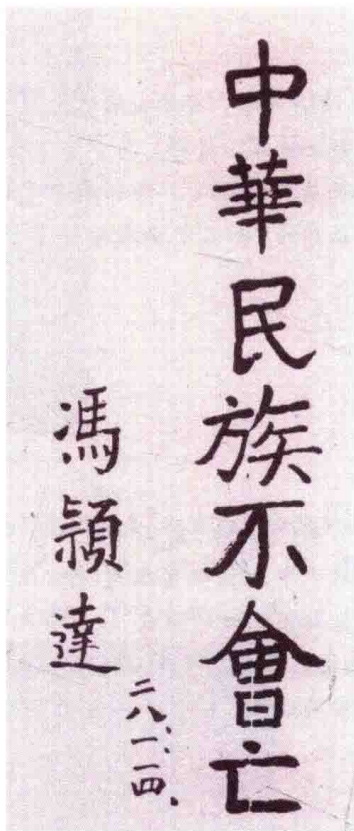 中華民族不會亡
馮頴達
二八、一、一四、